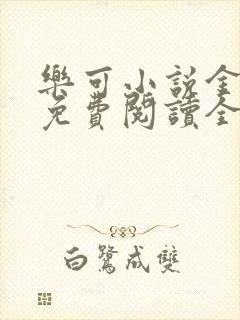 樂可小說金
免費閱讀全
白鷺成雙